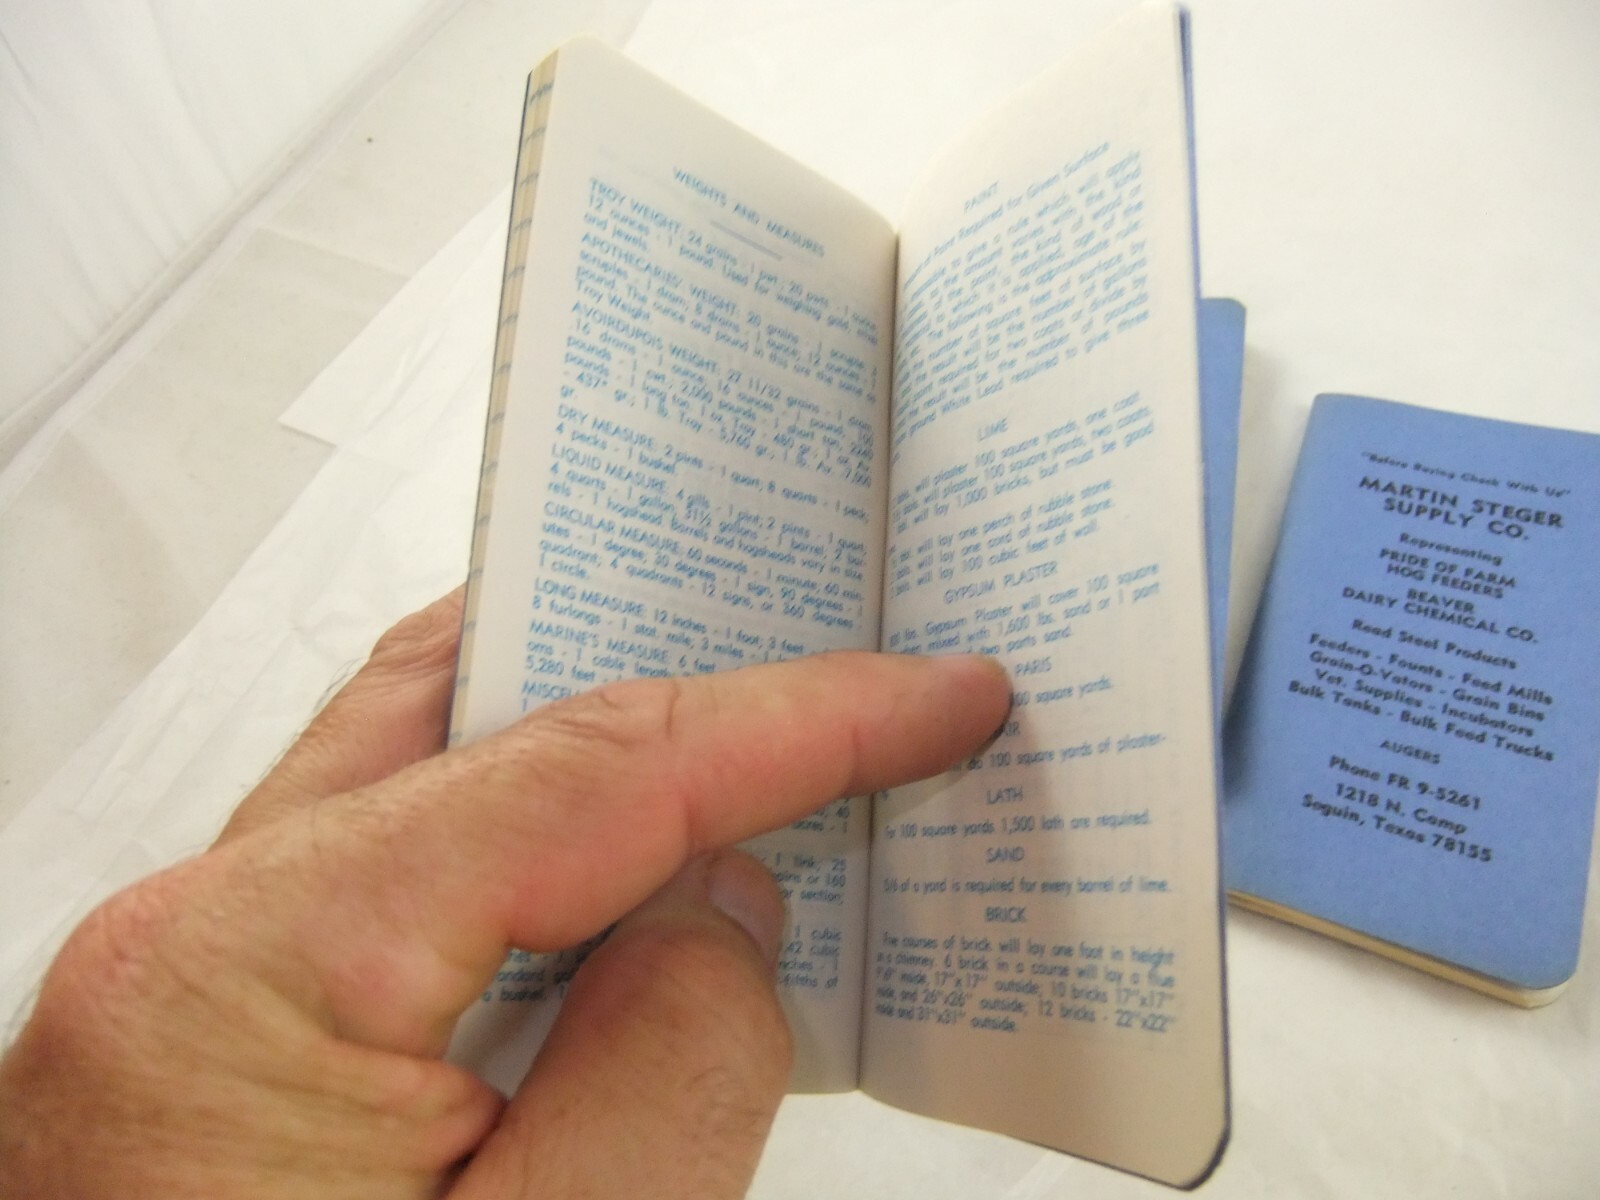 WEIGHTS AND MEASURES
TROY WEIGHT: 24 grains - 1 pwt.; 20 pwts. - 1 ounce
12 ounces - 1 pound. Used for weighing gold, silver
and jewels.
APOTHECARIES' WEIGHT: 20 grains - 1 scruple; 3
scruples - 1 dram; 8 drams - 1 ounce; 12 ounces - 1
pound. The ounce and pound in this are the same as
Troy Weight.
AVOIRDUPOIS WEIGHT: 27 11/32 grains - 1 dram;
16 drams - 1 ounce; 16 ounces - 1 pound; 100
pounds - 1 cwt.; 2,000 pounds - 1 short ton; 2240
pounds - 1 long ton. 1 oz. Troy - 480 gr.; 1 oz. Av.
gr.; 1 lb. Troy - 5,760 gr.; 1 lb. Av. - 7,000
gr.
DRY MEASURE: 2 pints - 1 quart; 8 quarts - 1 peck;
4 pecks - 1 bushel.
LIQUID MEASURE: 4 gills - 1 pint; 2 pints - 1 quart;
4 quarts - 1 gallon; 31½ gallons - 1 barrel; 2 bar-
rels - 1 hogshead. Barrels and hogsheads vary in size.
CIRCULAR MEASURE: 60 seconds - 1 minute; 60 min-
utes - 1 degree; 30 degrees - 1 sign; 90 degrees - 1
quadrant; 4 quadrants - 12 signs, or 360 degrees -
1 circle.
LONG MEASURE: 12 inches - 1 foot; 3 feet -
8 furlongs - 1 stat. mile; 3 miles - 1
MARINE'S MEASURE: 6 feet
oms - 1 cable length
5,280 feet - 1
1
40
acres - 1
1 link; 25
or 160
section;
1 cubic
cubic
inches - 1
of
a bushel.
PAINT
of Paint Required for Given Surface
to give a rule which will apply
as the amount varies with the kind
of the paint, the kind of wood or
to which it is applied, age of the
etc. The following is the approximate rule:
the number of square feet of surface by
the result will be the number of gallons
paint required for two coats or divide by
the result will be the number of pounds
ground White Lead required to give three
LIME
will plaster 100 square yards, one coat.
will plaster 100 square yards, two coats.
will lay 1,000 bricks, but must be good
will lay one perch of rubble stone.
will lay one cord of rubble stone.
will lay 100 cubic feet of wall.
GYPSUM PLASTER
Gypsum Plaster will cover 100 square
when mixed with 1,600 lbs. sand or 1 part
two parts sand.
PARIS
square yards.
do 100 square yards of plaster-
LATH
For 100 square yards 1,500 lath are required.
SAND
5/6 of a yard is required for every barrel of lime.
BRICK
Five courses of brick will lay one foot in height
in a chimney. 6 brick in a course will lay a flue
inside, 17"x17" outside; 10 bricks 17"x17"
inside and 26"x26" outside; 12 bricks - 22"x22"
inside and 31"x31" outside.
"Before Buying Check With Us"
MARTIN STEGER
SUPPLY CO.
Representing
PRIDE OF FARM
HOG FEEDERS
BEAVER
DAIRY CHEMICAL CO.
Read Steel Products
Feeders - Founts - Feed Mills
Grain-O-Vators - Grain Bins
Vet. Supplies - Incubators
Bulk Tanks - Bulk Feed Trucks
AUGERS
Phone FR 9-5261
1218 N. Camp
Seguin, Texas 78155